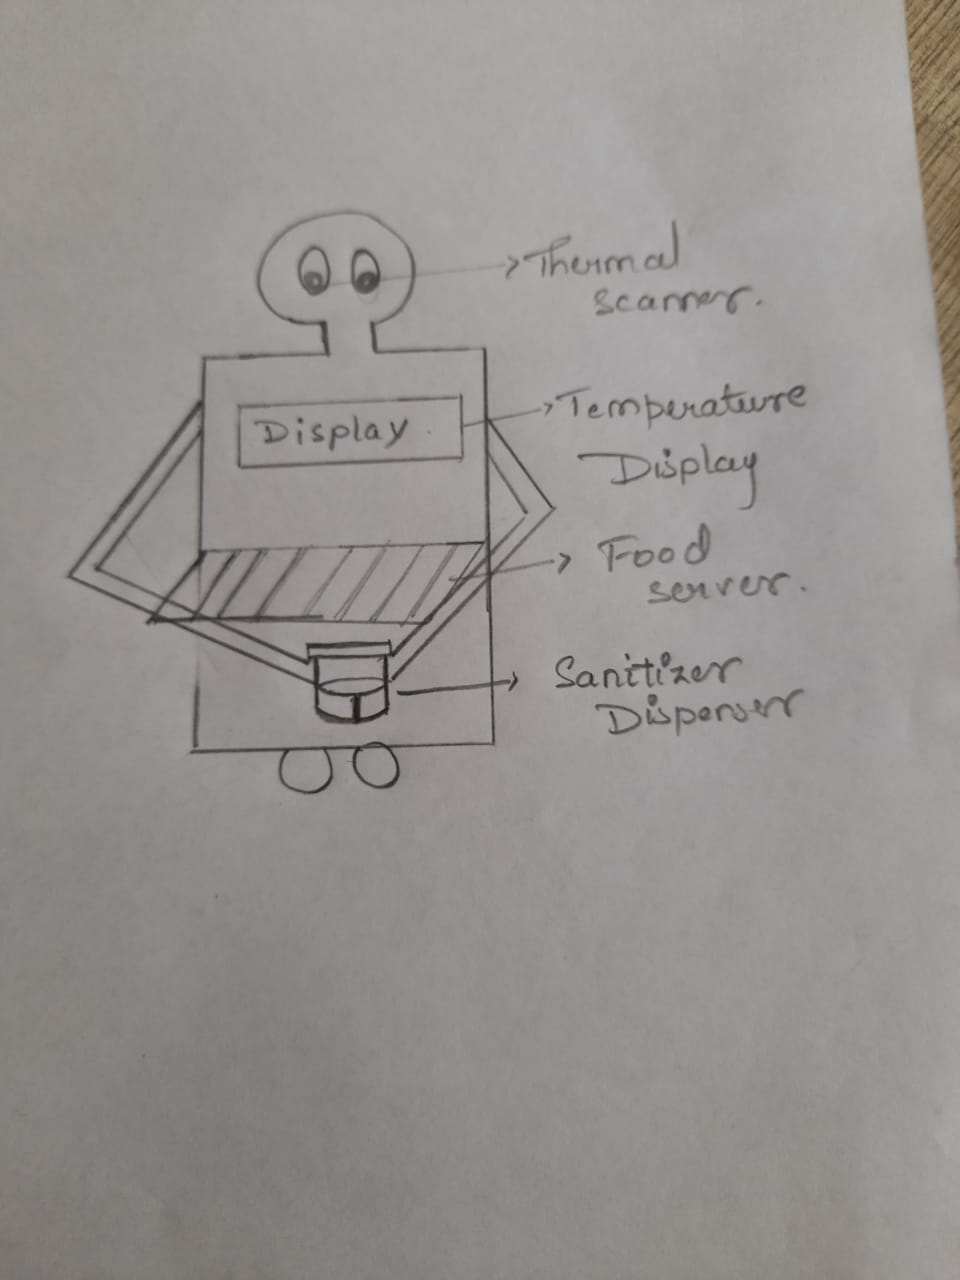 Thermal
scanner.
Display.
Temperature
Display
Food
server.
Sanitizer
Dispenser